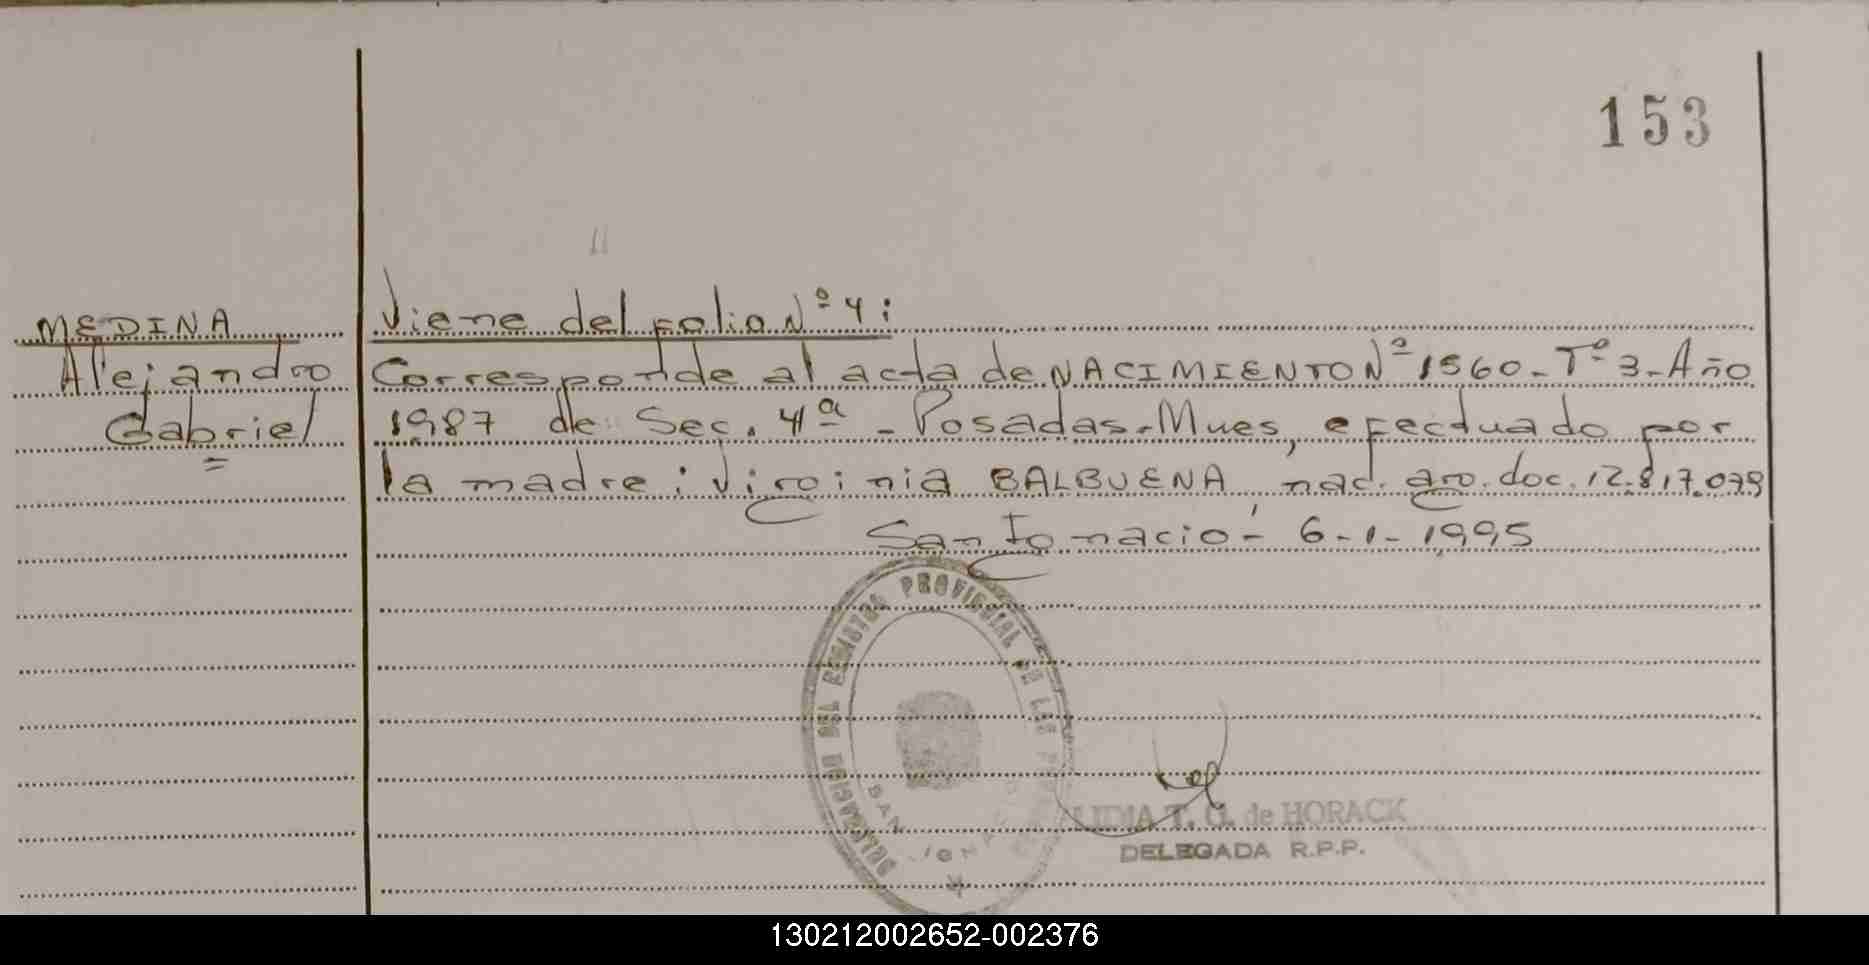 153
MEDINA
Alejandro
Gabriel
Viene del folio Nº 4:
Corresponde al acta de NACIMIENTO Nº 1560 - Tº 3 - Año
1987 de Sec. 4ª - Posadas - Mnes, efectuado por
la madre: Virginia BALBUENA, nac. arg. doc. 12.817.079
San Ignacio - 6-1-1995
DELEGACION DEL REGISTRO PROVINCIAL DE LAS
SAN IGNACIO
LIDIA T. G. de HORACK
DELEGADA R.P.P.
130212002652-002376